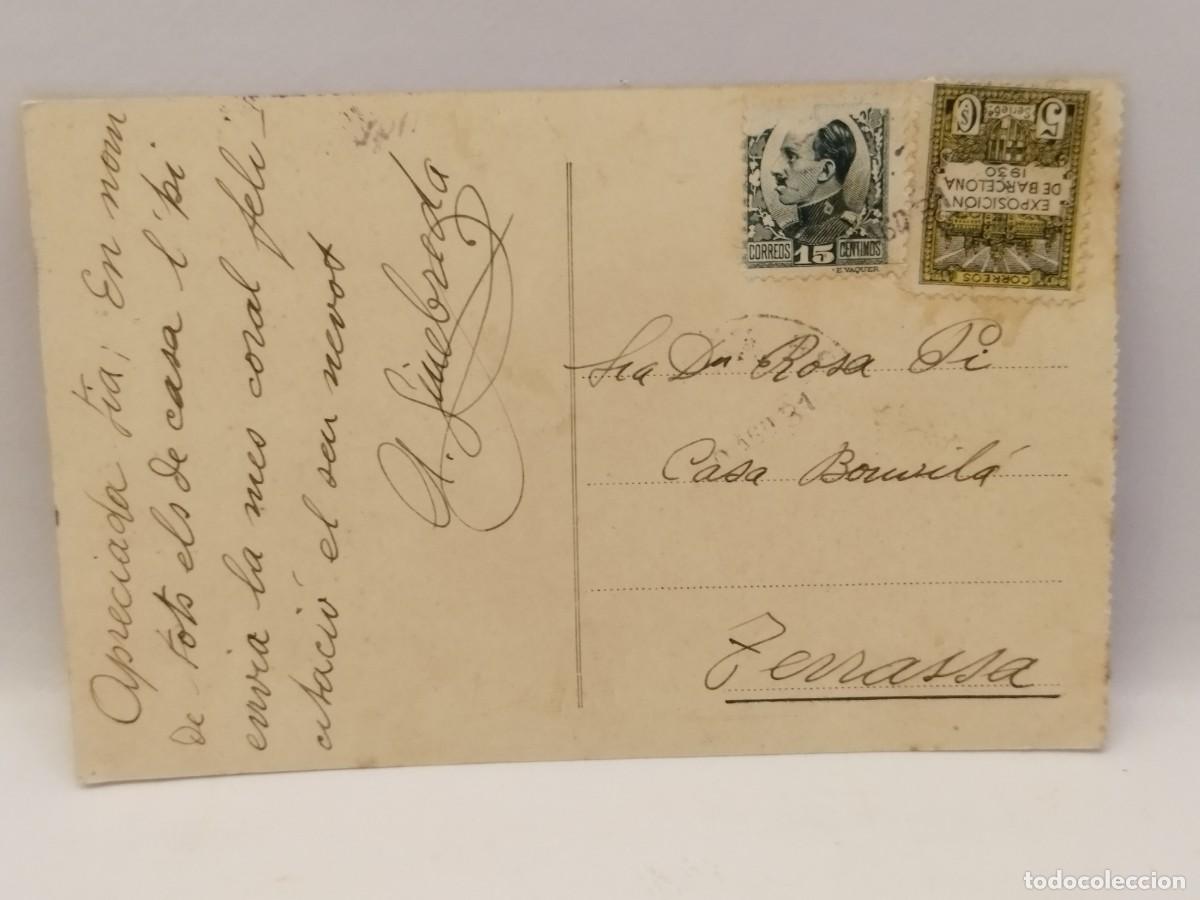 Apreciada tia: En nom
de tots els de casa l'hi
envia la mes coral feli-
citació el seu nevot
A. Ginebreda
CORREOS 15 CENTIMOS
E. VAQUER
5 Cs
EXPOSICION
DE BARCELONA
1930
CORREOS
Sra Dna Rosa Pi
Casa Bonvilá
Terrassa
todocoleccion